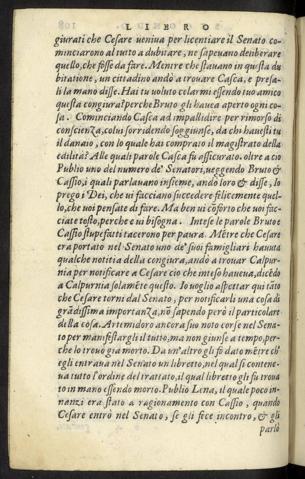 LIBRO
giurati che Cesare veniva per licentiare il Senato co
minciarono al tutto a dubitare, ne sapevano deliberare
quello, che fosse da fare. Mentre che stauano in questa du
bitatione, un cittadino andò a trouare Casca, e presa-
li la mano disse. Hai tu uoluto celarmi essendo tuo amico
questa congiura? perche Bruto gli haueua aperto ogni co-
sa. Cominciando Casca ad impallidire per rimorso di
conscienza, colui sorridendo soggiunse, da chi hauesti tu
il danaio, con lo quale hai comprato il magistrato della
edilità? Alle quali parole Casca fu assicurato. oltre a cio
Publio uno del numero de' Senatori, ueggendo Bruto &
Cassio, i quali parlauano insieme, andò loro & disse, Io
prego i Dei, che ui facciano succedere felicemente quel-
lo, che uoi pensate di fare. Ma ben ui cōforto che uoi fac-
ciate tosto, perche e ui bisogna. Intese le parole Bruto e
Cassio stupefatti tacerono per paura. Mētre che Cesare
era portato nel Senato uno de' suoi famigliari hauuta
qualche notitia della congiura, andò a trouar Calpur-
nia per notificare a Cesare cio che inteso haueua, dicēdo
a Calpurnia solamēte questo. Io uoglio aspettar qui tāto
che Cesare torni dal Senato, per notificarli una cosa di
grādissima importanza, nō sapendo però il particolare
della cosa. Artemidoro ancora suo noto corse nel Sena-
to per manifestargli il tutto, ma non giunse a tempo, per-
che lo trouò gia morto. Da un'altro gli fo dato mētre ch'
egli entraua nel Senato un libretto, nel qual si contene-
ua tutto l'ordine del trattato, il qual libretto gli fu troua
to in mano essendo morto. Publio Lena, il quale poco in-
nanzi era stato a ragionamento con Cassio, quando
Cesare entrò nel Senato, se gli fece incontro, & gli
parlò